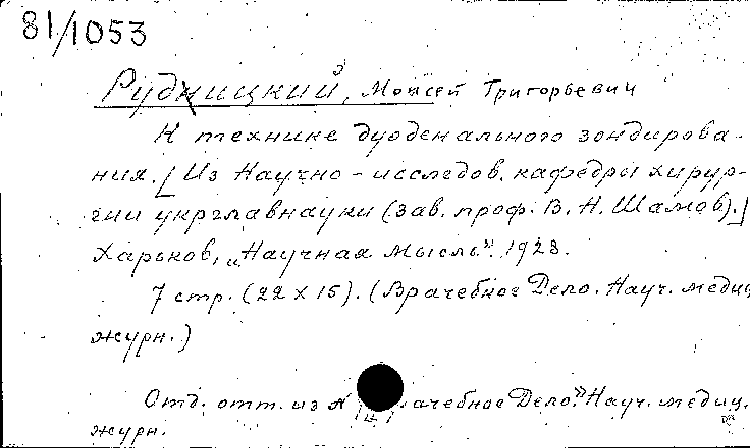 81/1053
Рудницкий, Моисей Григорьевич
К технике дуоденального зондирова-
ния. [Из Научно-исследов. кафедры хирур-
гии укрглавнауки (зав. проф. В. Н. Шамов).]
Харьков, „Научная Мысль". 1928.
7 стр. (22 х 15). (Врачебное Дело. Науч. медиц
журн.)
Отд. отт. из рачебное Дело". Науч. медиц.
журн.